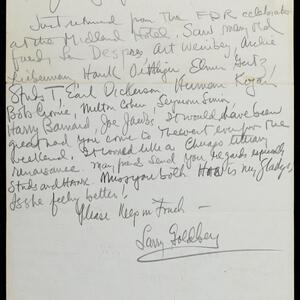 Just returned from the FDR celebration
at the Midland Hotel, Saw many old
friends, Len Despres Art Weinberg, Archie
Lieberman Hank Oettinger, Elmer Gertz
Studs T, Earl Dickerson, Herman Kogan
Bob Cromie, Milton Cohen Seymour Simon,
Harry Barnard, Joe Jacobs. It would have been
great had you come to the event even for the
weekend. It looked like a Chicago literary
renaissance. Many friends send you regards especially
Studs and Hank. Miss you both. How is my Gladys,
Is she feeling better!
Please Keep in Touch —
Larry Goldberg